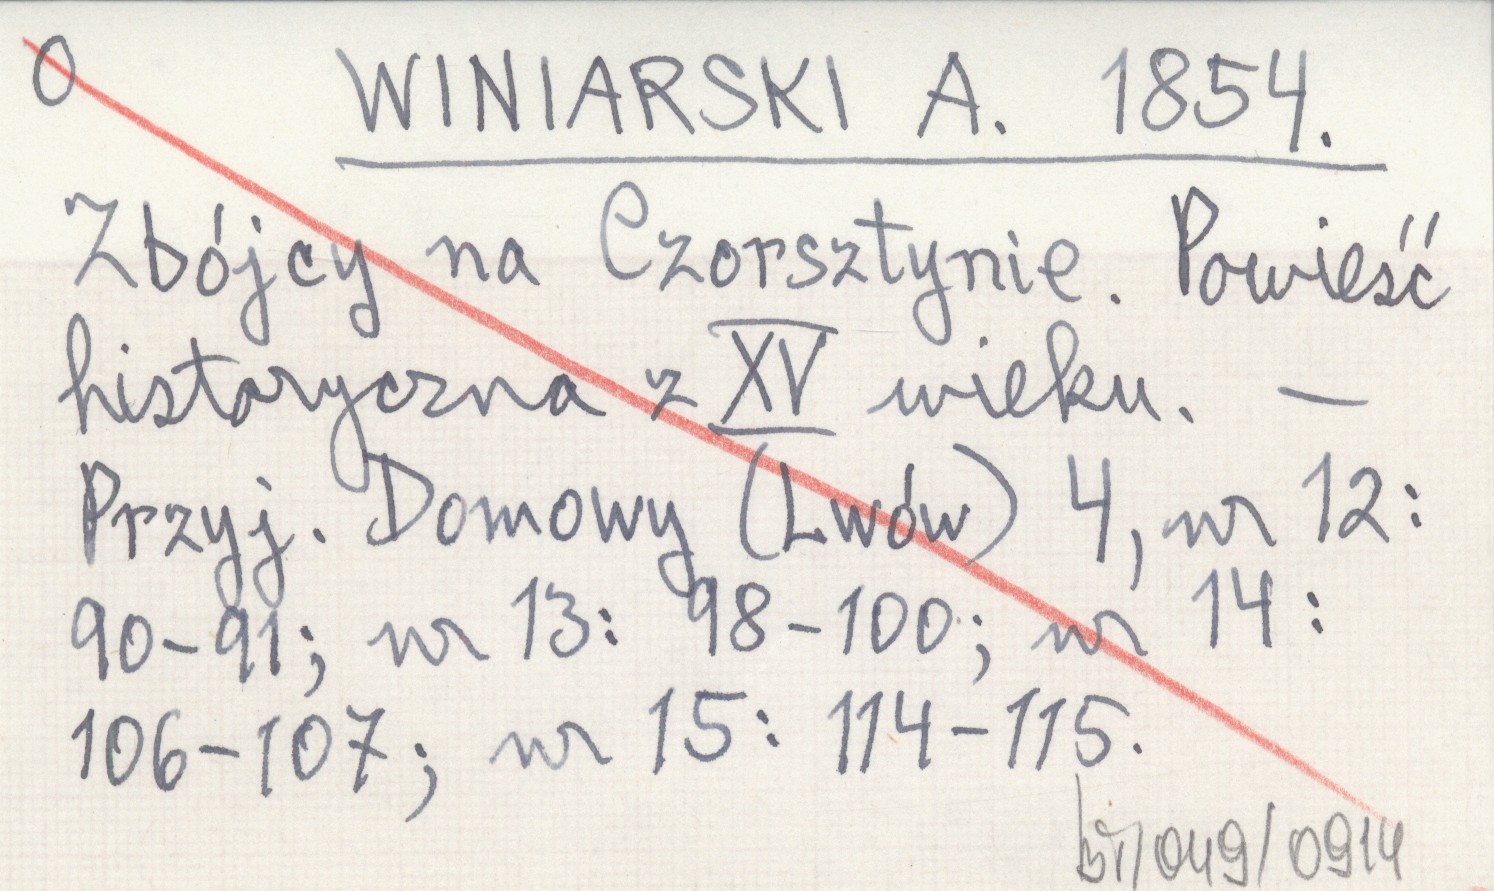 O WINIARSKI A. 1854.
Zbójcy na Czorsztynie. Powieść
historyczna z XV wieku. —
Przyj. Domowy (Lwów) 4, nr 12:
90-91; nr 13: 98-100; nr 14:
106-107; nr 15: 114-115.
/049/0914